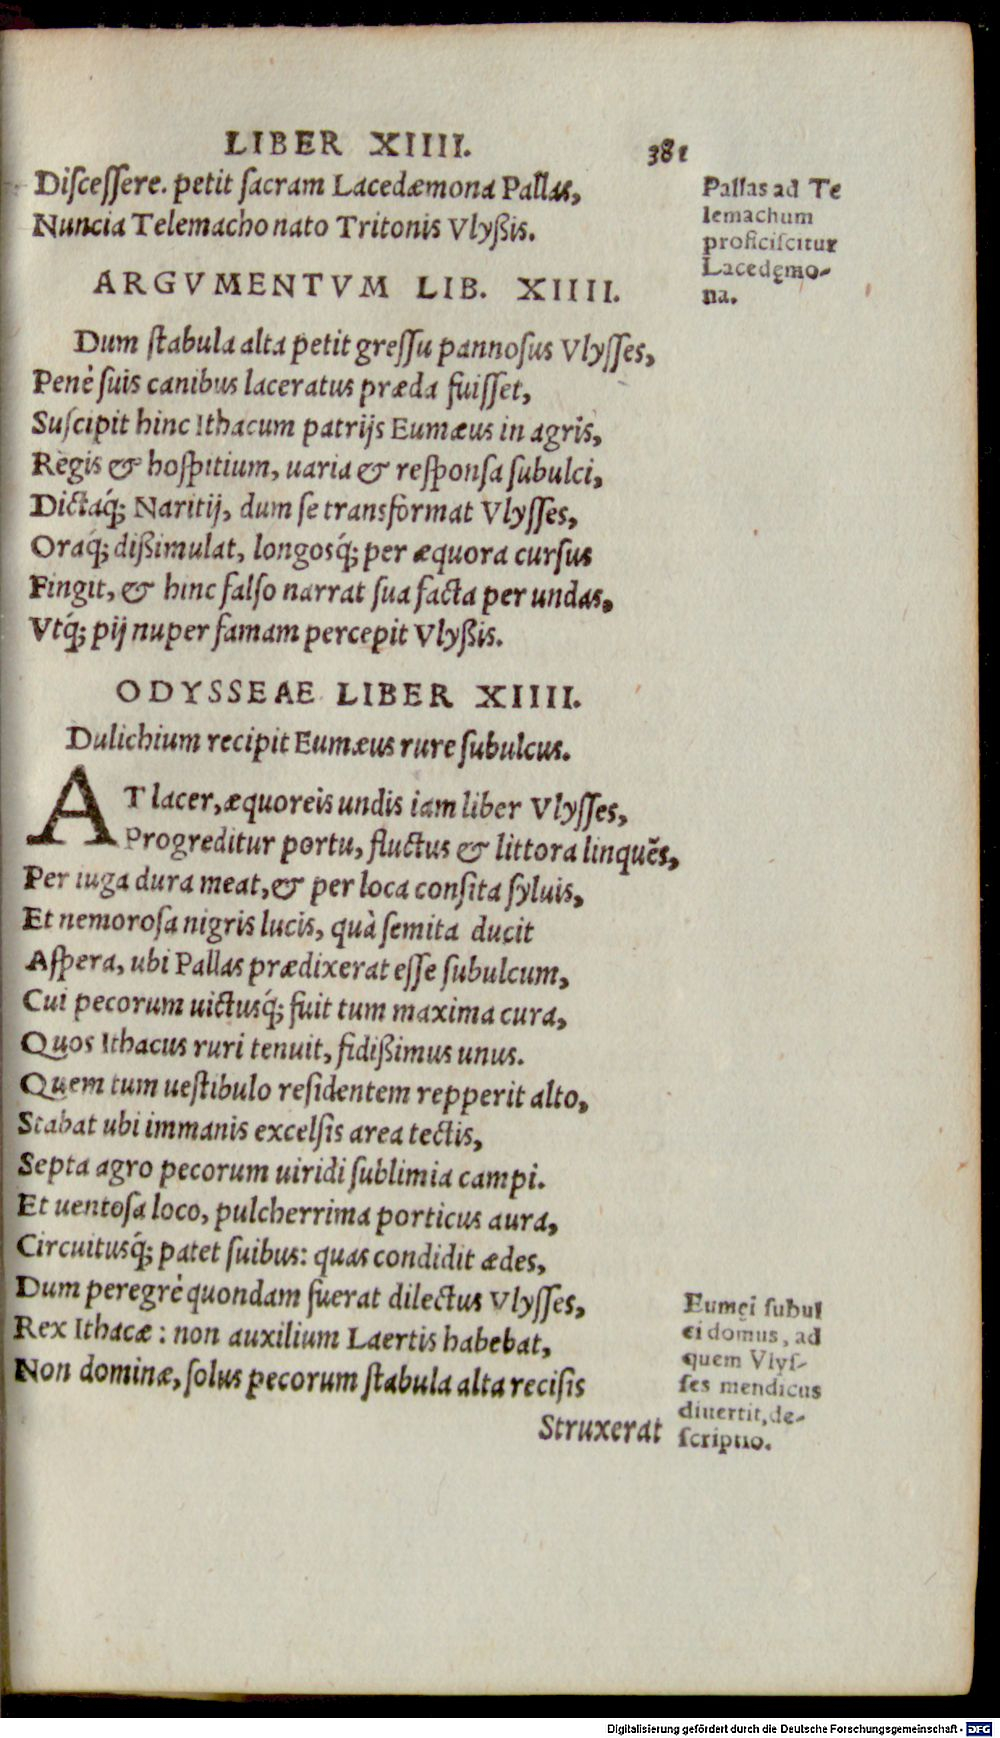 LIBER XIIII. 381
Diſceſſere. petit ſacram Lacedæmona Pallas,
Nuncia Telemacho nato Tritonis Vlyßis.
Pallas ad Te
lemachum
proficiſcitur
Lacedęmo-
na.
ARGVMENTVM LIB. XIIII.
Dum ſtabula alta petit greſſu pannoſus Vlyſſes,
Penè ſuis canibus laceratus præda fuiſſet,
Suſcipit hinc Ithacum patrijs Eumæus in agris,
Regis & hoſpitium, uaria & reſponſa ſubulci,
Dictaq́; Naritij, dum ſe transformat Vlyſſes,
Oraq́; dißimulat, longosq́; per æquora curſus
Fingit, & hinc falſo narrat ſua facta per undas,
Vtq́; pij nuper famam percepit Vlyßis.
ODYSSEAE LIBER XIIII.
Dulichium recipit Eumæus rure ſubulcus.
AT lacer, æquoreis undis iam liber Vlyſſes,
Progreditur portu, fluctus & littora linquẽs,
Per iuga dura meat, & per loca conſita ſyluis,
Et nemoroſa nigris lucis, quà ſemita ducit
Aſpera, ubi Pallas prædixerat eſſe ſubulcum,
Cui pecorum uictusq́; fuit tum maxima cura,
Quos Ithacus ruri tenuit, fidißimus unus.
Quem tum ueſtibulo reſidentem repperit alto,
Stabat ubi immanis excelſis area tectis,
Septa agro pecorum uiridi ſublimia campi.
Et uentoſa loco, pulcherrima porticus aura,
Circuitusq́; patet ſuibus: quas condidit ædes,
Dum peregrè quondam fuerat dilectus Vlyſſes,
Rex Ithacæ: non auxilium Laertis habebat,
Non dominæ, ſolus pecorum ſtabula alta reciſis
Struxerat
Eumęi ſubul
ci domus, ad
quem Vlyſ-
ſes mendicus
diuertit, de-
ſcriptio.
Digitalisierung gefördert durch die Deutsche Forschungsgemeinschaft - DFG